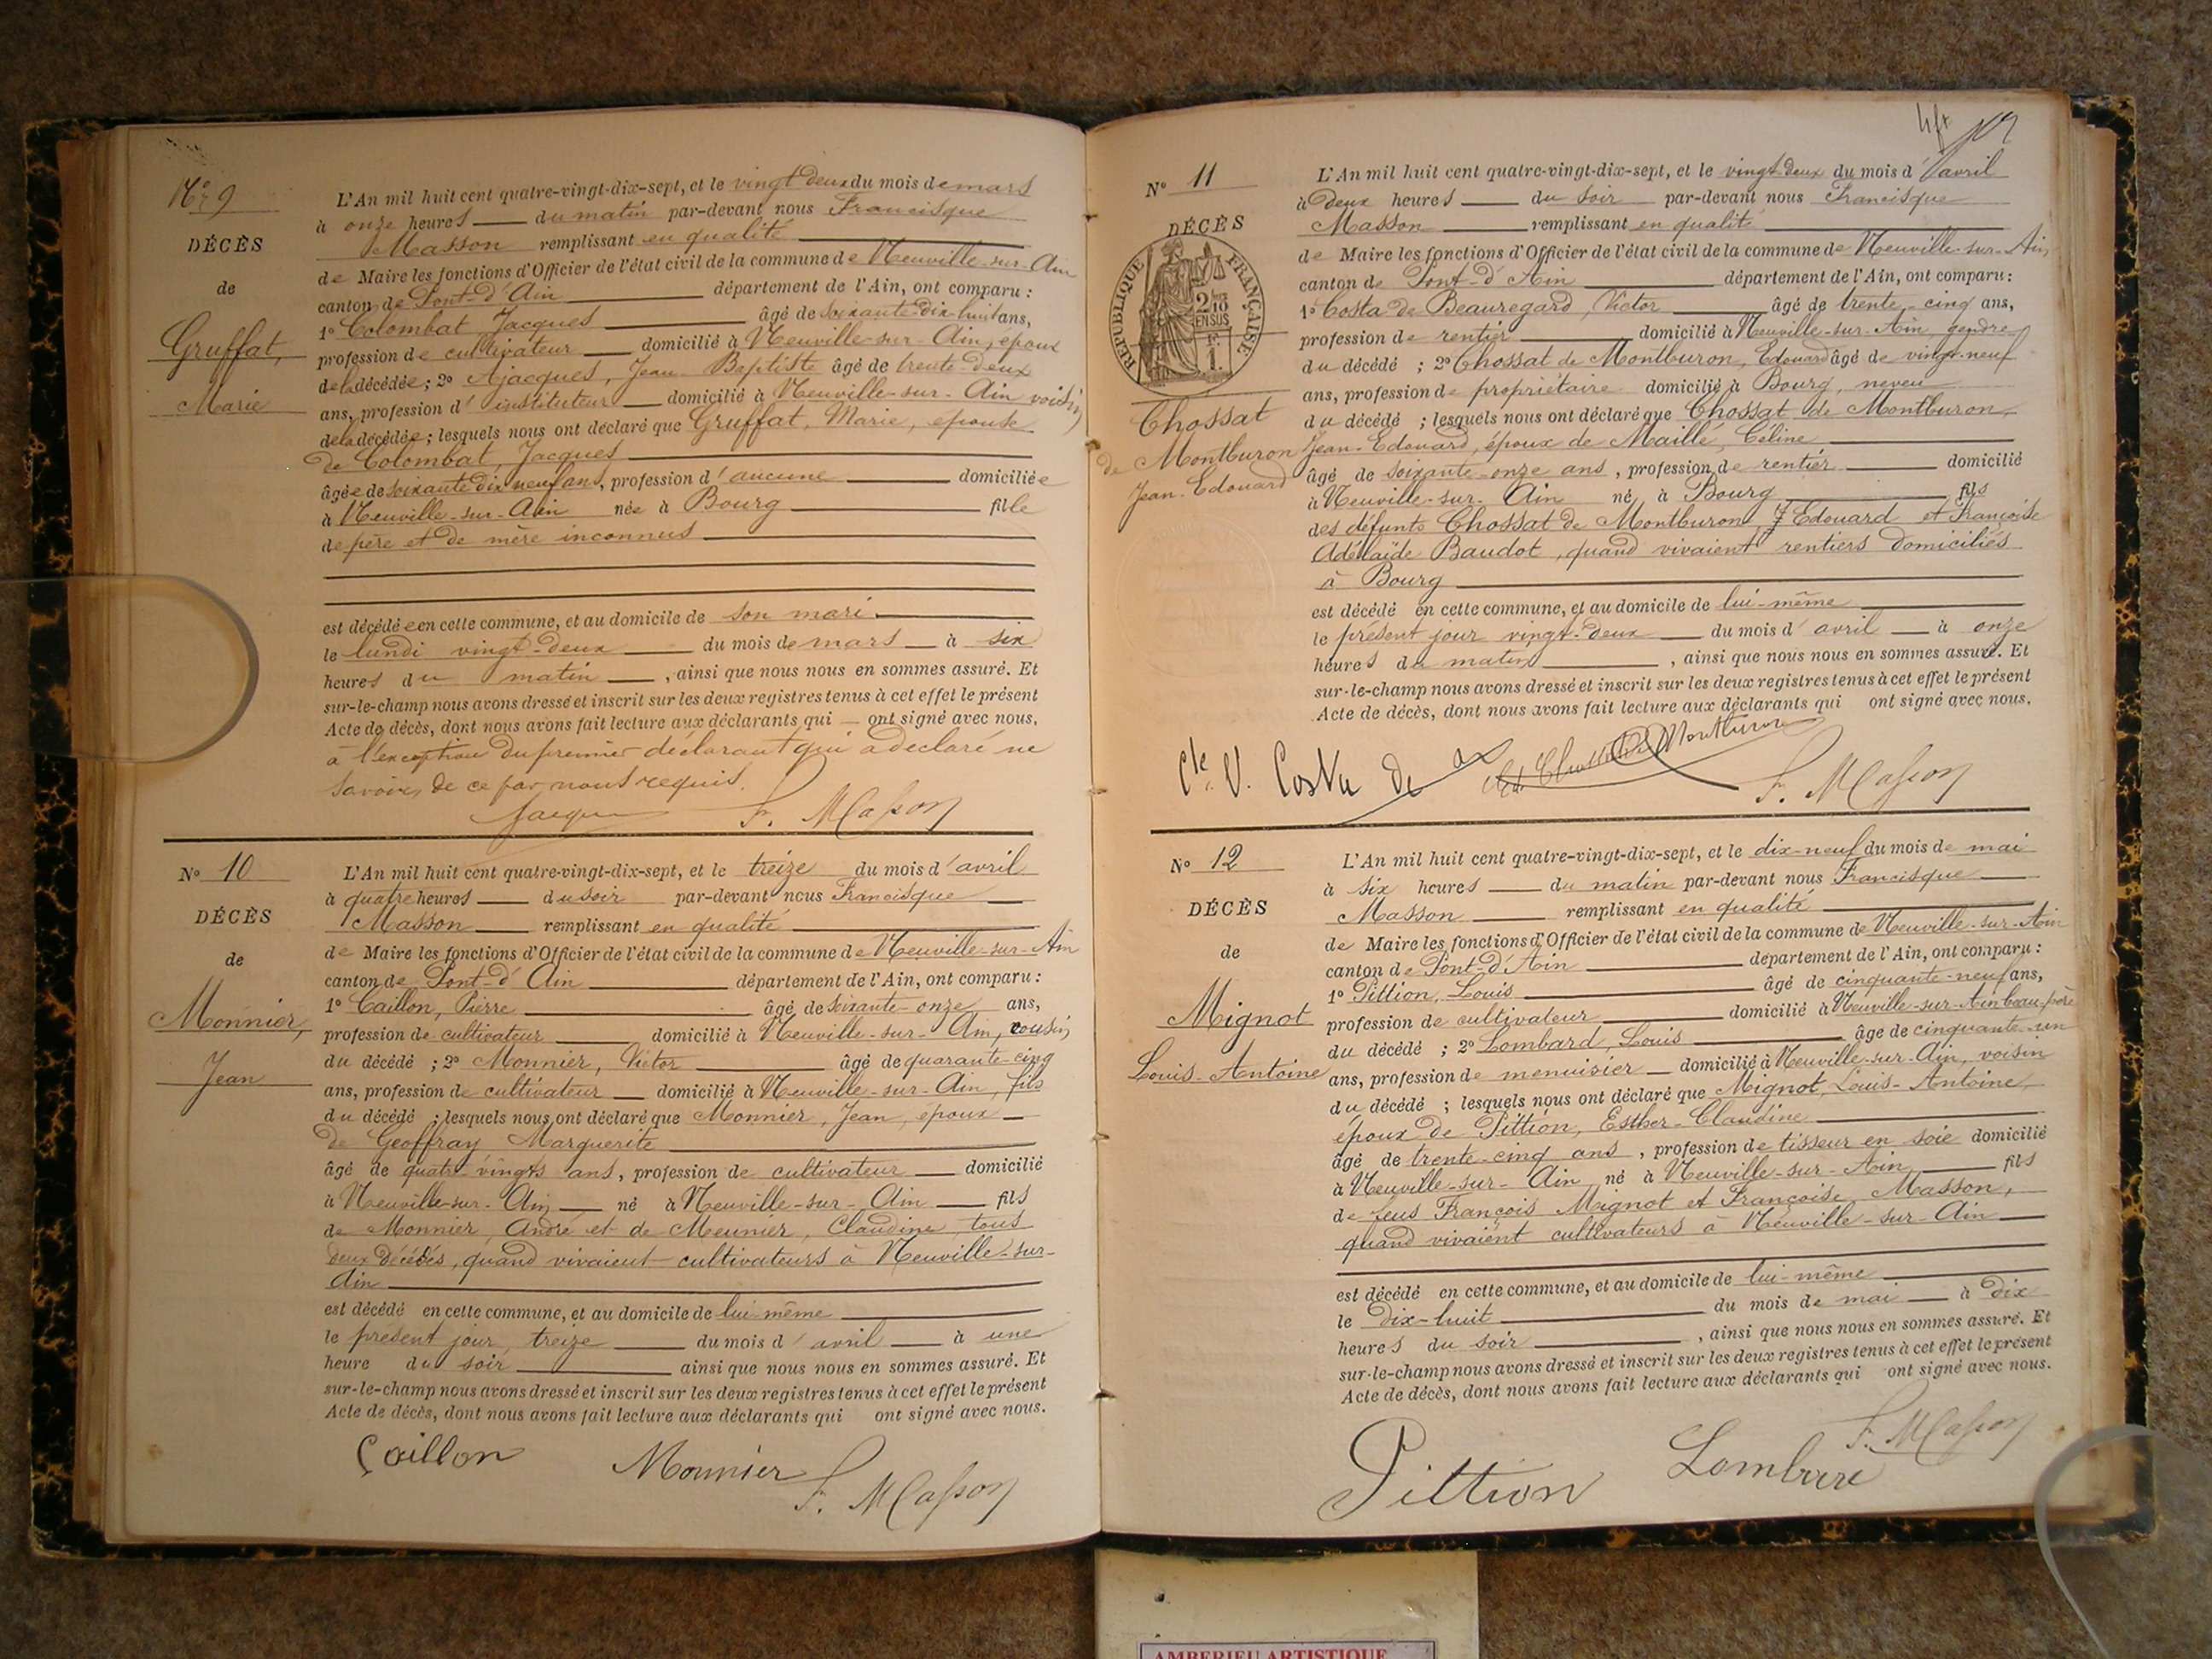 N° 9
DÉCÈS
de
Gruffat,
Marie
L'An mil huit cent quatre-vingt-dix-sept, et le vingt deux du mois de mars
à onze heures du matin par-devant nous Francisque
Masson remplissant en qualité
de Maire les fonctions d'Officier de l'état civil de la commune de Neuville-sur-Ain
canton de Pont-d'Ain département de l'Ain, ont comparu :
1° Colombat, Jacques âgé de soixante-dix-huit ans,
profession de cultivateur domicilié à Neuville-sur-Ain, époux
de la décédée ; 2° Ajacques, Jean Baptiste âgé de trente-deux
ans, profession d'instituteur domicilié à Neuville-sur-Ain voisin
de la décédée ; lesquels nous ont déclaré que Gruffat, Marie, épouse
de Colombat, Jacques
âgée de soixante dix neuf ans, profession d'aucune domiciliée
à Neuville-sur-Ain née à Bourg fille
de père et de mère inconnus
est décédée en cette commune, et au domicile de son mari
le lundi vingt-deux du mois de mars à six
heures du matin, ainsi que nous nous en sommes assuré. Et
sur-le-champ nous avons dressé et inscrit sur les deux registres tenus à cet effet le présent
Acte de décès, dont nous avons fait lecture aux déclarants qui — ont signé avec nous,
à l'exception du premier déclarant qui a déclaré ne
savoir, de ce par nous requis.
F. Masson
N° 10
DÉCÈS
de
Monnier,
Jean
L'An mil huit cent quatre-vingt-dix-sept, et le treize du mois d'avril
à quatre heures du soir par-devant nous Francisque
Masson remplissant en qualité
de Maire les fonctions d'Officier de l'état civil de la commune de Neuville-sur-Ain
canton de Pont-d'Ain département de l'Ain, ont comparu :
1° Caillon, Pierre âgé de soixante-onze ans,
profession de cultivateur domicilié à Neuville-sur-Ain, cousin
du décédé ; 2° Monnier, Victor âgé de quarante-cinq
ans, profession de cultivateur domicilié à Neuville-sur-Ain, fils
du décédé ; lesquels nous ont déclaré que Monnier, Jean, époux
de Geoffray Marguerite
âgé de quatre-vingts ans, profession de cultivateur domicilié
à Neuville-sur-Ain né à Neuville-sur-Ain fils
de Monnier, André et de Meunier, Claudine, tous
deux décédés, quand vivaient cultivateurs à Neuville-sur-
Ain
est décédé en cette commune, et au domicile de lui-même
le présent jour, treize du mois d'avril à une
heure du soir ainsi que nous nous en sommes assuré. Et
sur-le-champ nous avons dressé et inscrit sur les deux registres tenus à cet effet le présent
Acte de décès, dont nous avons fait lecture aux déclarants qui ont signé avec nous.
Caillon Monnier F. Masson
N° 11
DÉCÈS
RÉPUBLIQUE FRANÇAISE
2/10 EN SUS
1F.
Chossat
de Montburon
Jean-Edouard
L'An mil huit cent quatre-vingt-dix-sept, et le vingt-deux du mois d'avril
à deux heures du soir par-devant nous Francisque
Masson remplissant en qualité
de Maire les fonctions d'Officier de l'état civil de la commune de Neuville-sur-Ain,
canton de Pont-d'Ain département de l'Ain, ont comparu :
1° Costa de Beauregard, Victor âgé de trente-cinq ans,
profession de rentier domicilié à Neuville-sur-Ain, gendre
du décédé ; 2° Chossat de Montburon, Edouard âgé de vingt-neuf
ans, profession de propriétaire domicilié à Bourg, neveu
du décédé ; lesquels nous ont déclaré que Chossat de Montburon,
Jean-Edouard, époux de Maillé, Céline
âgé de soixante-onze ans, profession de rentier domicilié
à Neuville-sur-Ain né à Bourg fils
des défunts Chossat de Montburon, J Edouard et Françoise
Adélaïde Baudot, quand vivaient rentiers domiciliés
à Bourg
est décédé en cette commune, et au domicile de lui-même
le présent jour vingt-deux du mois d'avril à onze
heures du matin, ainsi que nous nous en sommes assuré. Et
sur-le-champ nous avons dressé et inscrit sur les deux registres tenus à cet effet le présent
Acte de décès, dont nous avons fait lecture aux déclarants qui ont signé avec nous.
Cte. V. Costa de Ed. Chossat de Montburon F. Masson
N° 12
DÉCÈS
de
Mignot
Louis-Antoine
L'An mil huit cent quatre-vingt-dix-sept, et le dix-neuf du mois de mai
à six heures du matin par-devant nous Francisque
Masson remplissant en qualité
de Maire les fonctions d'Officier de l'état civil de la commune de Neuville-sur-Ain
canton de Pont-d'Ain département de l'Ain, ont comparu :
1° Pittion, Louis âgé de cinquante-neuf ans,
profession de cultivateur domicilié à Neuville-sur-Ain beau-père
du décédé ; 2° Lombard, Louis âgé de cinquante-un
ans, profession de menuisier domicilié à Neuville-sur-Ain, voisin
du décédé ; lesquels nous ont déclaré que Mignot, Louis-Antoine,
époux de Pittion, Esther-Claudine
âgé de trente-cinq ans, profession de tisseur en soie domicilié
à Neuville-sur-Ain né à Neuville-sur-Ain fils
de feus François Mignot et Françoise Masson,
quand vivaient cultivateurs à Neuville-sur-Ain
est décédé en cette commune, et au domicile de lui-même
le dix-huit du mois de mai à dix
heures du soir, ainsi que nous nous en sommes assuré. Et
sur-le-champ nous avons dressé et inscrit sur les deux registres tenus à cet effet le présent
Acte de décès, dont nous avons fait lecture aux déclarants qui ont signé avec nous.
Pittion Lombard F. Masson
AMBERIEU ARTISTIQUE